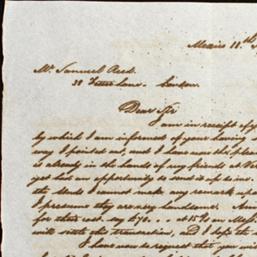 Mexico 18th
Mr. Samuel Reed.
38 Fetter Lane - London
Dear Sir
I am in receipt of
by which I am informed of your having
way I pointed out, and I have
is already in the hands of my friends at Ver
yet had an opportunity to send it up to me.
the Medals I cannot make any remark
I presume they are very handsome.
for their cost, my
with this transaction, and I
I have now to request that you will